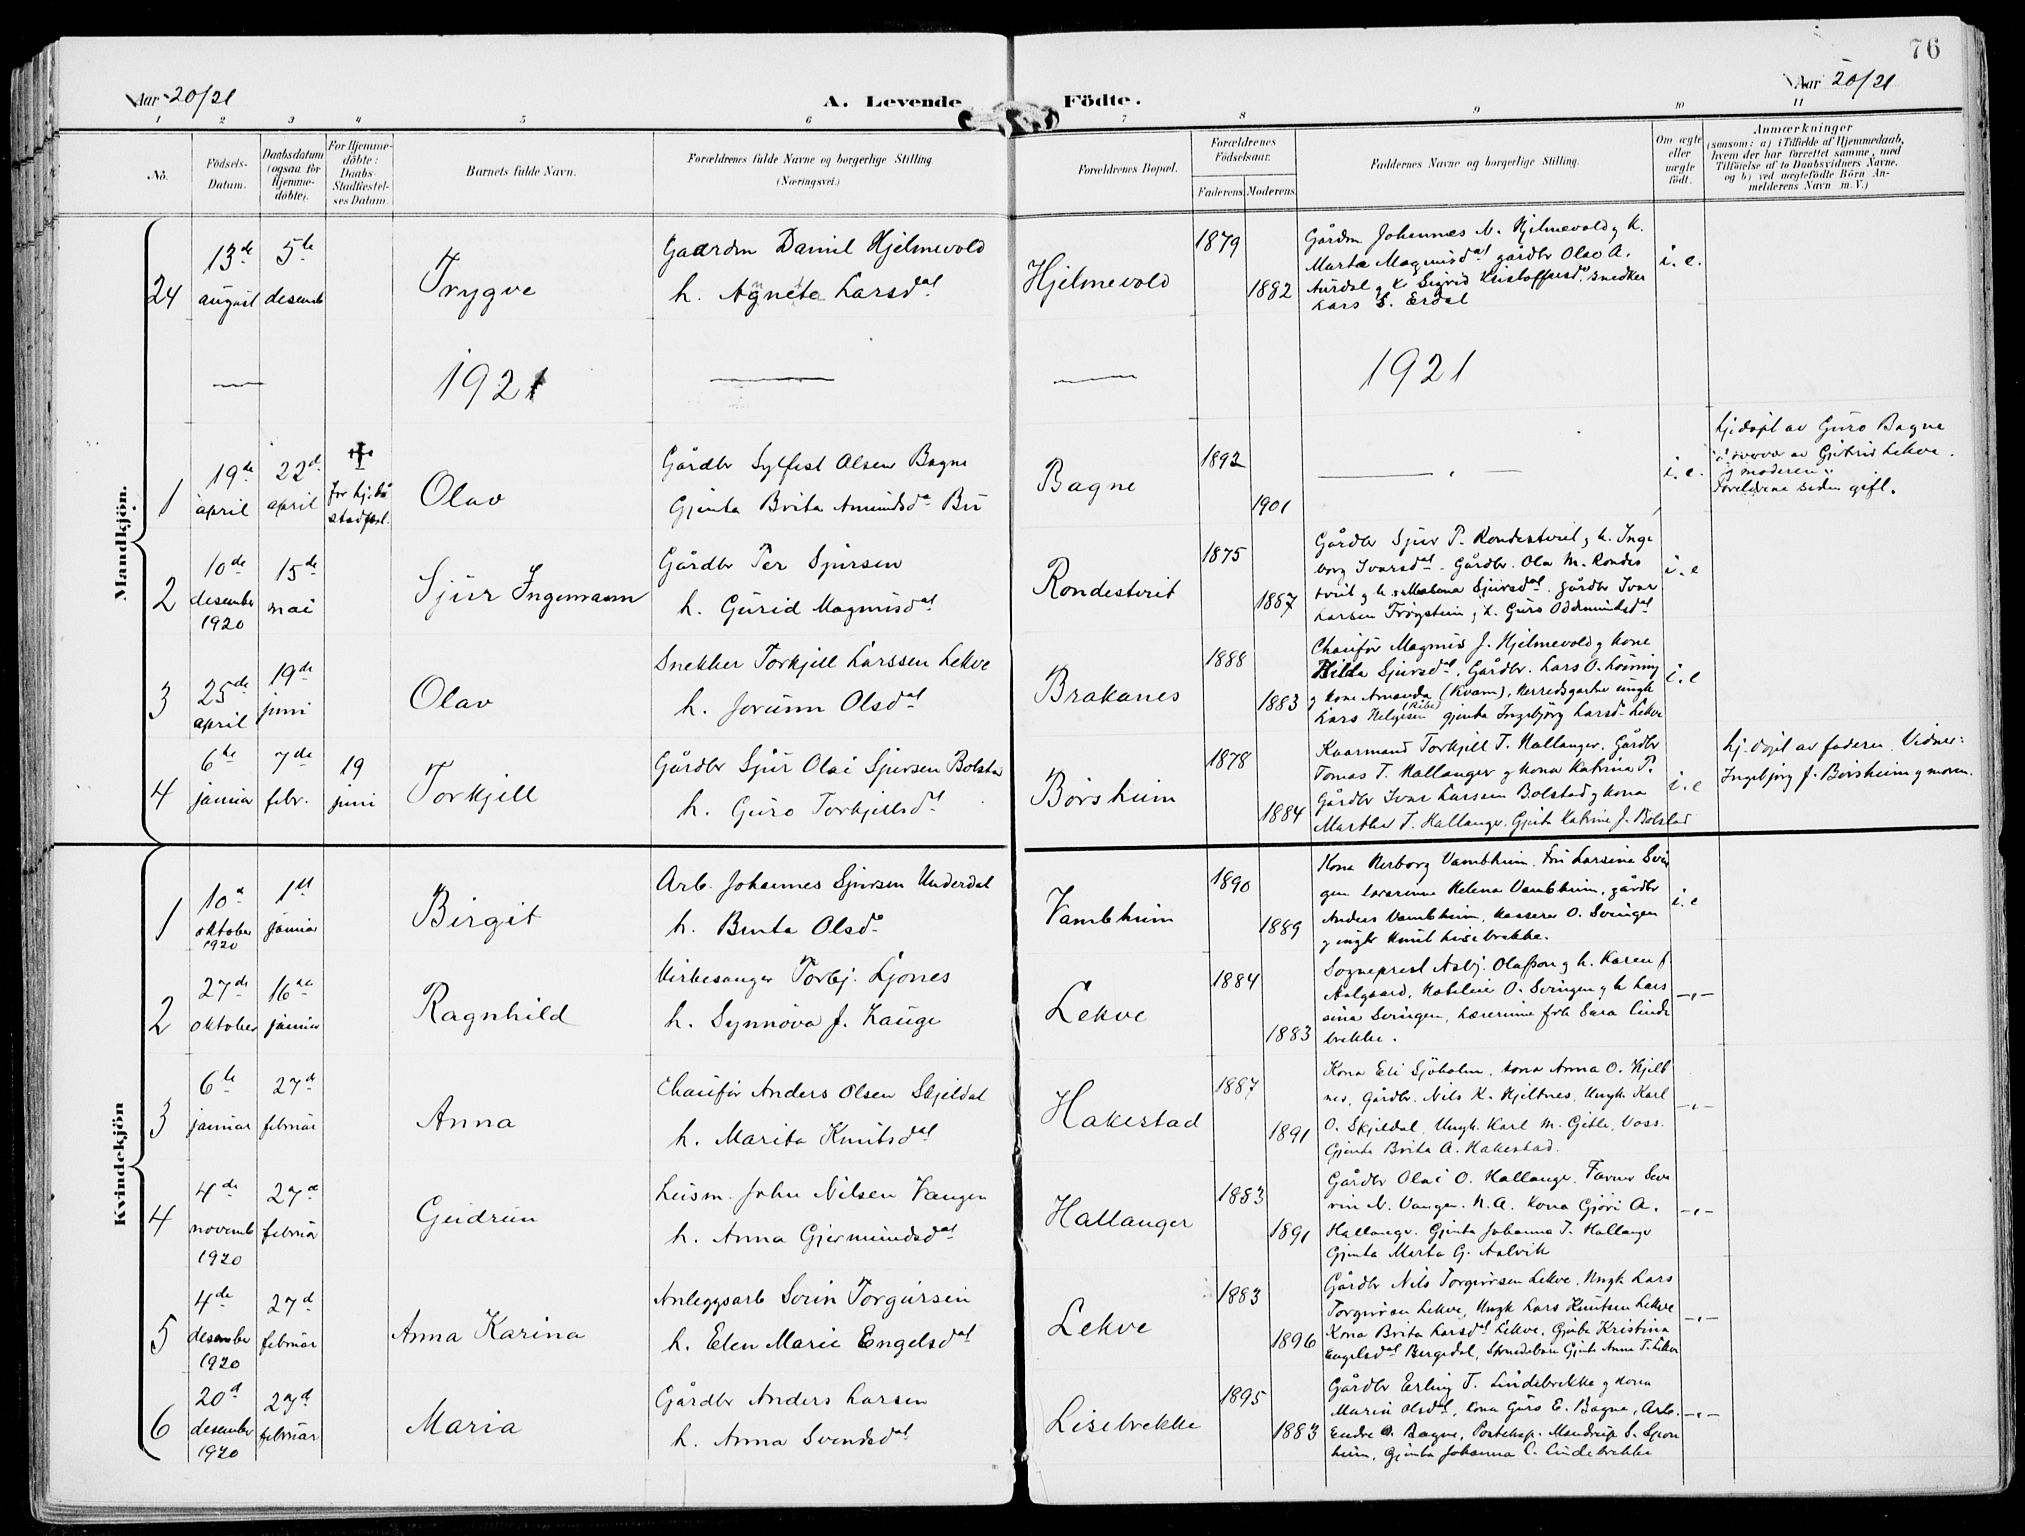 76
Aar 20/21
A. Levende Födte.
Aar 20/21
1 2 3 4 5 6 7 8 9 10 11
No.
Födsels-Datum.
Daabsdatum (ogsaa for Hjemmedöbte).
For Hjemmedöbte: Daabs-Stadfæstelses Datum.
Barnets fulde Navn.
Forældrenes fulde Navne og borgerlige Stilling (Næringsvei.)
Forældrenes Bopæl.
Forældrenes Födselsaar.
Faderens. Moderens.
Faddernes Navne og borgerlige Stilling.
Om ægte eller uægte födt.
Anmærkninger
(saasom: a) i Tilfælde af Hjemmedaab, hvem der har forrettet samme, med Tilföielse af to Daabsvidners Navne, og b) ved uægtefödte Börn Anmelderens Navn m. V.)
Mandkjön.
24
13de august
5te desemb
Trygve
Gaardm Daniel Hjelmevold
h. Agneta Larsdal
Hjelmevold
1879
1882
Gårdm Johannes N. Hjelmevold g h.
Marta Magnusdat gårdbr Olav A.
Aurdal g k Sigrid Kristoffersd. snedker
Lars E. Erdal
i. e.
1921
1921
1
19de april
22d april
for hjdå stadfæst.
Olav
Gårdbr Sylfest Olsen Bagne
Gjenta Brita Amundsda Bu
Bagne
1892
1901
i. e.
hjdøpt av Guro Bagne
i nærvær av Gjertrud Lekve
g moderen
Foreldrene siden gift.
2
10de desember 1920
15de mai
Sjur Ingemann
Gårdbr Per Sjursen
h. Gurid Magnusdat
Rondestveit
1875
1887
Gårdbr Sjur P. Rondestveit g h. Inge
borg Ivarsdat. Gårdbr. Ola M. Rondes
tveit g h. Madena Sjursdat. gårdbr Ivar
Larsen Trøystein g h. Guro Oddmundsdat
i. e
3
25de april
19de juni
Olav
Snekker Torkjell Larssen Lekve
h. Jorunn Olsdat
Brakanes
1888
1883
Chaufør Magnus J. Hjelmevold g kone
Hilda Sjursdat, Gårdbr. Lars O. Løining
g kone Amanda (Kvam), Herredsgartner ungk
Lars Helgesen (Ribe) gjenta Ingebjørg Larsd Lekve
i. e
4
6te januar
7de febr.
19 juni
Torkjell
Gårdbr Sjur Olai Sjursen Bolstad
h. Guro Torkjellsdt
Børsheim
1878
1884
Kaarmand Torkjell T. Hallanger. Gårdbr
Tomas T. Hallanger g kona Katrina P.
Gårdbr Ivar Larssen Bolstad g kona
Marthe T. Hallanger. Gjenta Katrine J. Bolstad
i. e
hj. døpt av faderen. Vidner:
Ingebjørg J. Børsheim g moren.
Kvindekjön
1
10a oktober 1920
1st januar
Birgit
Arb. Johannes Sjursen Underdal
h. Brita Olsd
Vambheim
1890
1889
Kona Herborg Vambheim, Fru Larsina Svin
gen lærerinne Helena Vambheim, gårdbr
Anders Vambheim, kasserer O. Svingen
g ungkr Knut Lisebrekke.
i. e
2
27de oktober
16de januar
Ragnhild
Kirkesanger Torbj. Ljones
h. Synnøva J. Hauge
Lekve
1884
1883
Sogneprest Asbj. Olafson g h. Karen f.
Aalgaard, O. Svingen g h Lars
sina Svingen, Lærerinne frk Sara Linde
brekke.
—„—
3
6te januar
27d februar
Anna
Chaufør Anders Olsen Skjeldal
h. Marita Knutsdat
Hakestad
1887
1891
Kona Eli Sjöholm, kona Anna O. Hjelt
nes, Gårdbr. Nils K. Hjeltnes, Ungk. Karl
O. Skjeldal, Ungk. Karl M. Gjelle, Voss.
Gjenta Brita A. Hakestad.
—„—
4
4de novemb 1920
27d februa
Gudrun
Leism. John Nilsen Vangen
h. Anna Gjermundsdat
Hallanger
1883
1891
Gårdbr Olai O. Hallange. Farmer Seve
rin N. Vangen. N. A. Kona Gjøri A.
Hallange. Gjenta Johanna T. Hallange
Gjenta Marta G. Aalvik
—„—
5
4de desember 1920
27d februar
Anna Karina
Anleggsarb Sorin Torgursen
h. Elen Marie Engelsdat
Lekve
1883
1896
Gårdbr Nils Torgersen Lekve, Ungk Lars
Lekve, Ungk Lars Knutsen Lekve
Kona Brita Larsdat Lekve, Gjenta Kristina
Engelsdat Bergedal, Gjenta Anna T. Lekve
—„—
6
20d desember 1920
27d februar
Maria
Gårdbr Anders Larsen
h. Anna Svendsdat
Lisebrekke
1895
1883
Gårdbr Erling T. Lindebrekke g kona
Marie Olsdat, kona Guro E. Bagne, Arb.
Endre O. Bagne, Posteksp. Mandrup S. Spon
heim, Gjenta Johanna C. Lindebrekke
—„—